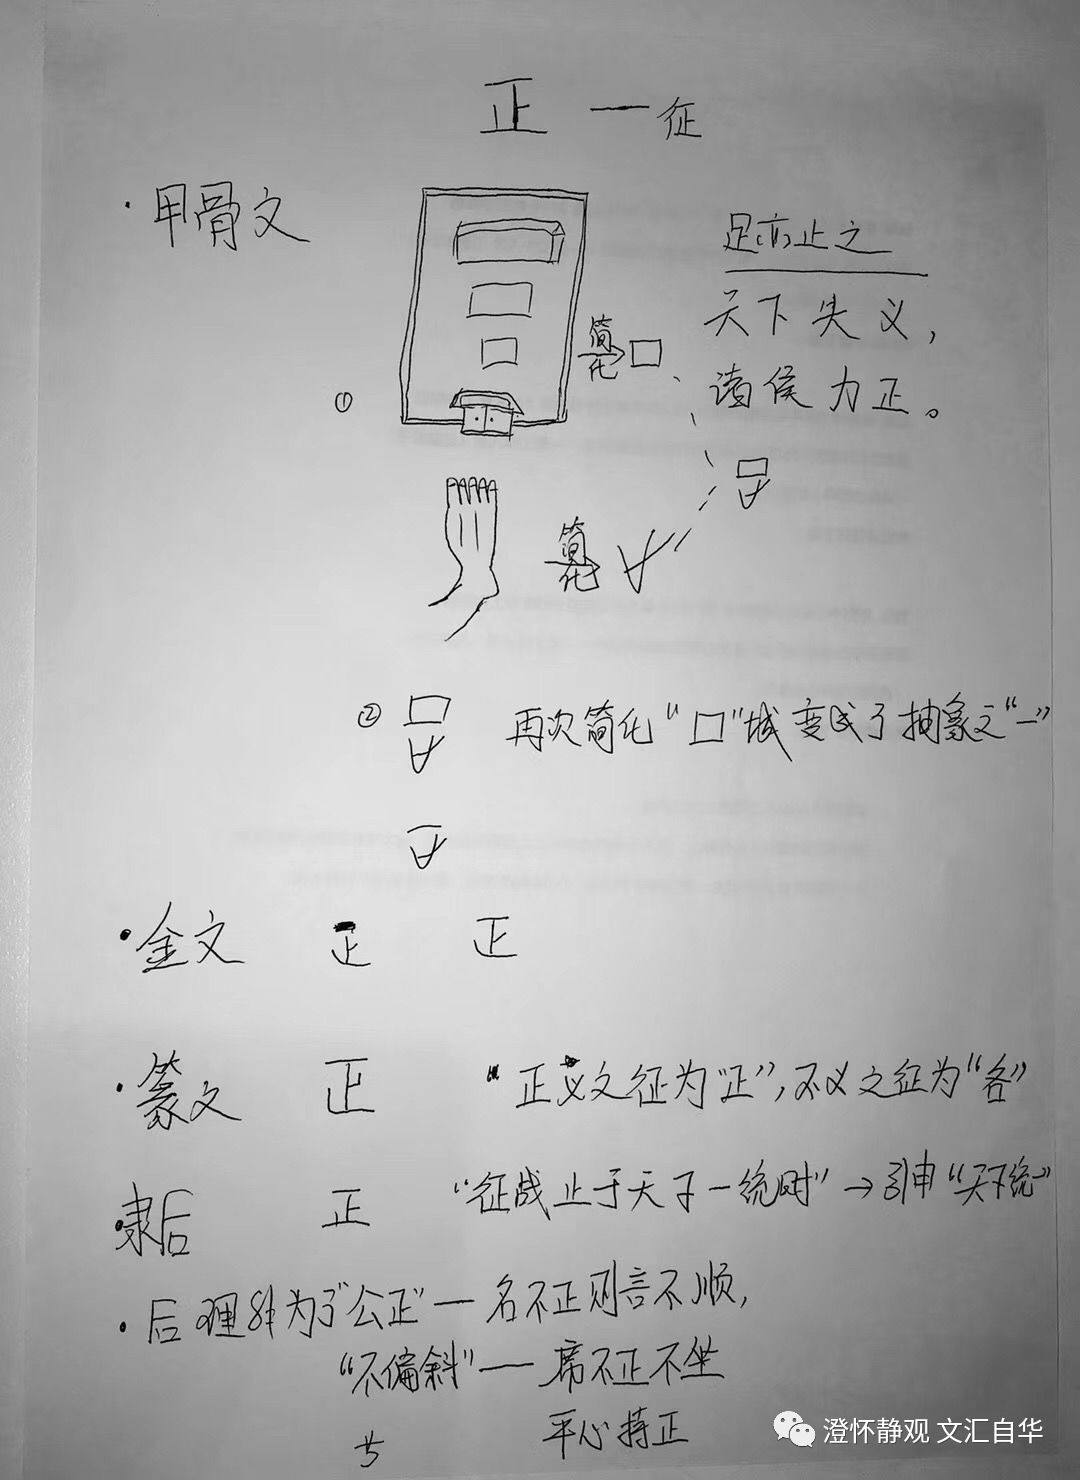 正 — 征
· 甲骨文
足亦止之
天下失义，
诸侯力正。
简化 口
①
简化
② 再次简化“口”城变成了抽象之“一”
· 金文 正 正
· 篆文 正 “正义之征为“正”，不义之征为“各”
· 隶后 正 “征战止于天子一统时”→引申“天下统”
· 后理解为了“公正”— 名不正则言不顺，
“不偏斜”— 席不正不坐
平心持正
澄怀静观 文汇自华